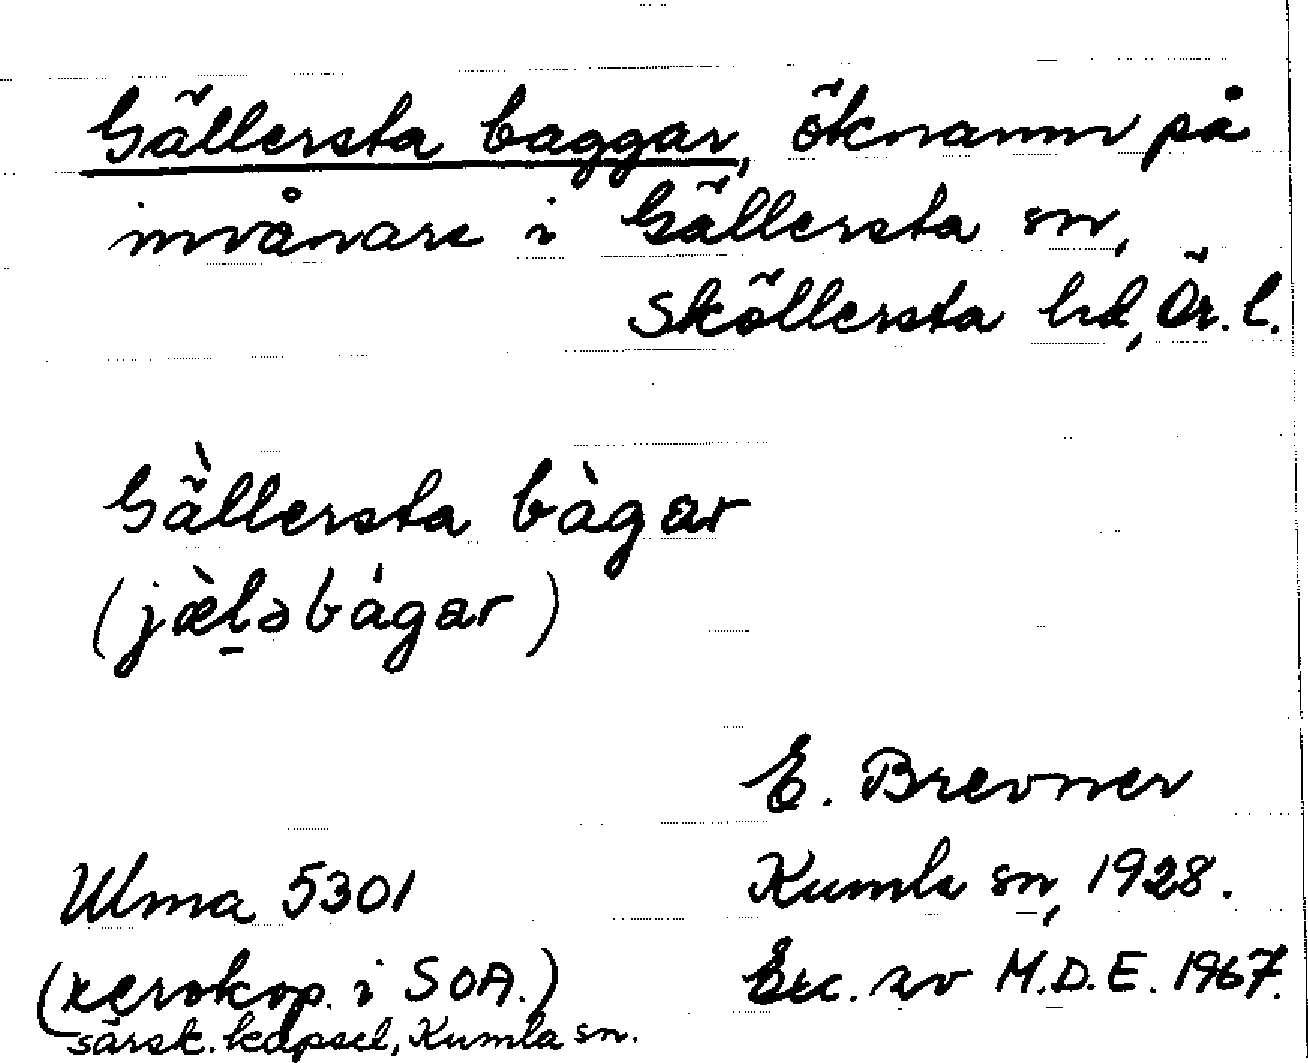 Gällersta baggar, öknamn på
invånare i Gällersta sn,
Sköllersta hd, Ör. l.
Gä̀llersta bàgar
(jæ̀l̠ə bágar)
E. Brevner
Ulma 5301
Kumla sn, 1928.
(xerokop. i SOA.)
Exc. av M.D.E. 1967.
särsk. kapsel, Kumla sn.